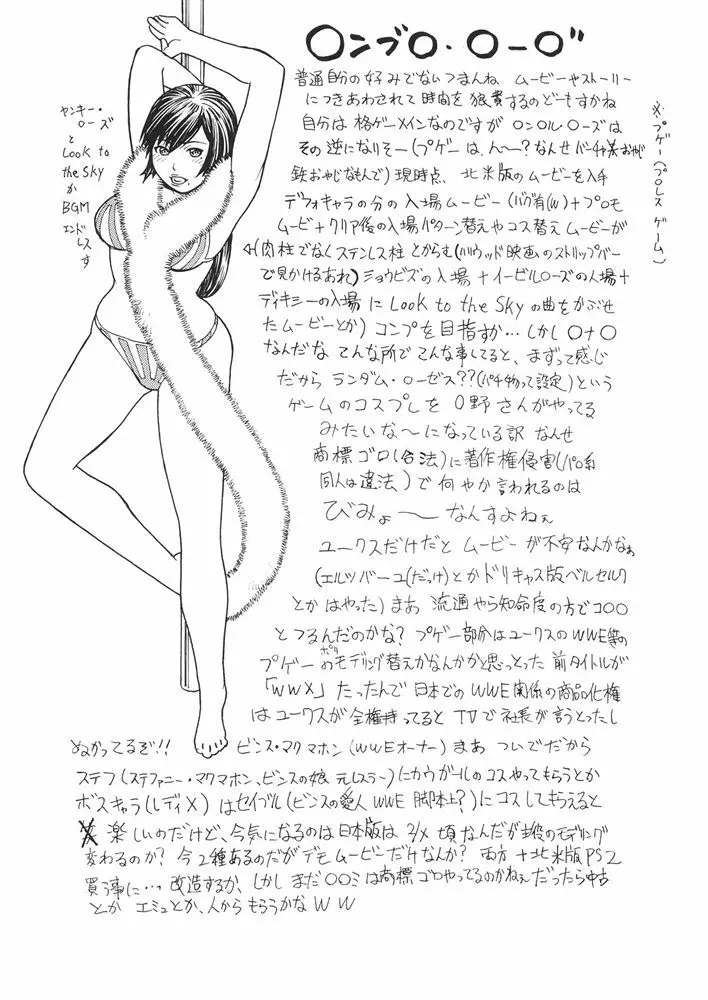 〇ンブ〇・〇ー〇"
普通自分の好みでないつまんね ムービーやストーリー
につきあわされて時間を浪費するのどーもすかね
自分は格ゲーメインなのですが 〇ン〇ル〇ーズは
その逆になりそー(プゲーは、ん〜?なんせバーチャ
鉄おやじなもんで)現時点、北米版のムービーを入手
デフォキャラの分の入場ムービー(バグ有(W)+プロモ
ムービ+クリア後の入場パターン替えやコス替えムービーが
(肉柱でなくステンレス柱とからむ(ハリウッド映画のストリップバー
で見かけるあれ)ショウビズの入場+イービルローズの入場+
ディキシーの入場にLook to the Skyの曲をかぶせ
たムービーとか)コンプを目指すか…しかし〇ナ〇
なんだな こんな所でこんな事してると、まずって感じ
だから ランダム・ローゼス??(パチ物って設定)という
ゲームのコスプレを 〇野さんがやってる
みたいな〜になっている訳 なんせ
商標ゴロ(合法)に著作権侵害(パロ系
同人は違法)で何やか言われるのは
びみょ〜なんすよねぇ
ユークスだけだと ムービーが不安なんかなぁ
(エルツバーユ(だっけ)とかドリキャス版ベルセルク
とかはやった)まあ 流通やら知命度の方でコ〇〇
とつるんだのかな? プゲー部分はユークスのWWE等の
プゲーのポリモデリング替えかなんかと思っとった 前タイトルが
「WWX」たったんで日本でのWWE関係の商品化権
はユークスが全権持ってるとTVで社長が言うとったし
ぬかってるぞ!! ビンス・マクマホン(WWEオーナー)まあ ついでだから
ステフ(ステファニー・マクマホン、ビンスの娘 元レスラー)にカウガールのコスやってもらうとか
ボスキャラ(レディX)はセイブル(ビンスの愛人 WWE 脚本上?)にコスしてもらえると
楽しいのだけど、今気になるのは日本版は 2/X 頃なんだが主役のモデリング
変わるのか? 今2種あるのだがデモムービーだけなんか? 両方+北米版PS2
買う事に…改造するか、しかし まだ〇〇ミは商標ゴロやってるのかねぇ だったら中古
とか エミュとか、人からもらうかな WW
ヤンキー・
ローズ
と
Look to
the Sky
が
BGM
エンドレス
す
※プゲー(プロレスゲーム)